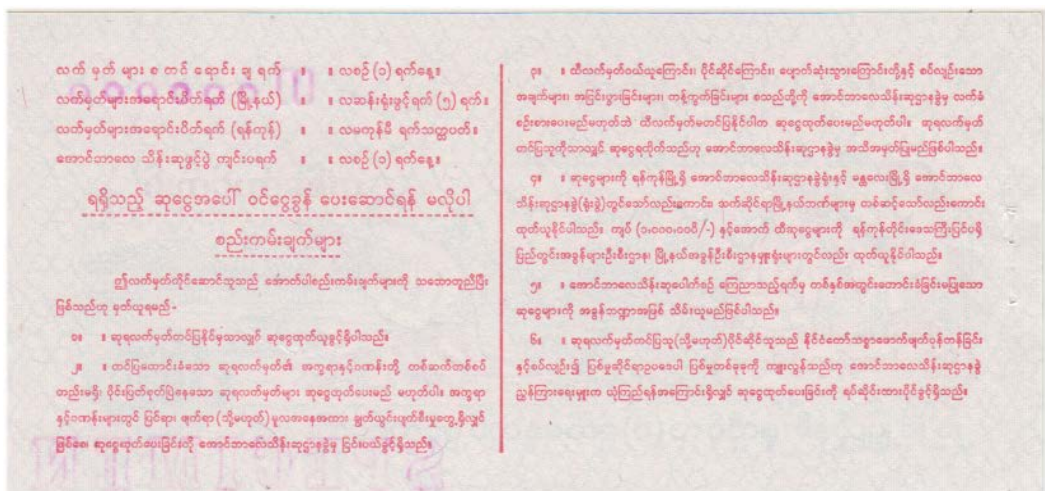 လက် မှတ် များ စ တင် ရောင်း ချ ရက် ။ ။ လစဉ် (၁) ရက်နေ့။
လက်မှတ်များအရောင်းပိတ်ရက် (မြို့နယ်) ။ ။ လဆန်းရုံးဖွင့်ရက် (၅) ရက်။
လက်မှတ်များအရောင်းပိတ်ရက် (ရန်ကုန်) ။ ။ လမကုန်မီ ရက်သတ္တပတ်။
အောင်ဘာလေ သိန်းဆုဖွင့်ပွဲ ကျင်းပရက် ။ ။ လစဉ် (၁) ရက်နေ့။
ရရှိသည့် ဆုငွေအပေါ် ဝင်ငွေခွန် ပေးဆောင်ရန် မလိုပါ
စည်းကမ်းချက်များ
ဤလက်မှတ်ကိုင်ဆောင်သူသည် အောက်ပါစည်းကမ်းချက်များကို သဘောတူညီပြီး
ဖြစ်သည်ဟု မှတ်ယူရမည်-
၁။ ။ ဆုရလက်မှတ်တင်ပြနိုင်မှသာလျှင် ဆုငွေထုတ်ယူခွင့်ရှိပါသည်။
၂။ ။ တင်ပြတောင်းခံသော ဆုရလက်မှတ်၏ အက္ခရာနှင့်ဂဏန်းတို့ တစ်ဆက်တစ်စပ်
တည်းမရှိ၊ ပိုင်းပြတ်စုတ်ပြဲနေသော ဆုရလက်မှတ်များ ဆုငွေထုတ်ပေးမည် မဟုတ်ပါ။ အက္ခရာ
နှင့်ဂဏန်းများတွင် ပြင်ရာ၊ ဖျက်ရာ (သို့မဟုတ်) မူလအနေအထား ချွတ်ယွင်းပျက်စီးမှုတွေ့ရှိလျှင်
ဖြစ်စေ၊ ဆုငွေထုတ်ပေးခြင်းကို အောင်ဘာလေသိန်းဆုဌာနခွဲမှ ငြင်းပယ်ခွင့်ရှိသည်။
၃။ ။ ထီလက်မှတ်ဝယ်ယူကြောင်း၊ ပိုင်ဆိုင်ကြောင်း၊ ပျောက်ဆုံးသွားကြောင်းတို့နှင့် စပ်လျဉ်းသော
အချက်များ၊ အငြင်းပွားခြင်းများ၊ ကန့်ကွက်ခြင်းများ စသည်တို့ကို အောင်ဘာလေသိန်းဆုဌာနခွဲမှ လက်ခံ
စဉ်းစားပေးမည်မဟုတ်ဘဲ ထီလက်မှတ်မတင်ပြနိုင်ပါက ဆုငွေထုတ်ပေးမည်မဟုတ်ပါ။ ဆုရလက်မှတ်
တင်ပြသူကိုသာလျှင် ဆုငွေရထိုက်သည်ဟု အောင်ဘာလေသိန်းဆုဌာနခွဲမှ အသိအမှတ်ပြုမည်ဖြစ်ပါသည်။
၄။ ။ ဆုငွေများကို ရန်ကုန်မြို့ရှိ အောင်ဘာလေသိန်းဆုဌာနခွဲရုံးနှင့် မန္တလေးမြို့ရှိ အောင်ဘာလေ
သိန်းဆုဌာနခွဲ(ရုံးခွဲ)တွင်သော်လည်းကောင်း၊ သက်ဆိုင်ရာမြို့နယ်ဘဏ်များမှ တစ်ဆင့်သော်လည်းကောင်း
ထုတ်ယူနိုင်ပါသည်။ ကျပ် (၁,၀၀၀,၀၀၀ိ/-) နှင့်အောက် ထီဆုငွေများကို ရန်ကုန်တိုင်းဒေသကြီးပြင်ပရှိ
ပြည်တွင်းအခွန်များဦးစီးဌာန၊ မြို့နယ်အခွန်ဦးစီးဌာနမှူးရုံးများတွင်လည်း ထုတ်ယူနိုင်ပါသည်။
၅။ ။ အောင်ဘာလေသိန်းဆုပေါက်စဉ် ကြေညာသည့်ရက်မှ တစ်နှစ်အတွင်းတောင်းခံခြင်းမပြုသော
ဆုငွေများကို အခွန်ဘဏ္ဍာအဖြစ် သိမ်းယူမည်ဖြစ်ပါသည်။
၆။ ။ ဆုရလက်မှတ်တင်ပြသူ(သို့မဟုတ်)ပိုင်ဆိုင်သူသည် နိုင်ငံတော်သစ္စာဖောက်ဖျက်ပုန်ကန်ခြင်း
နှင့်စပ်လျဉ်း၍ ပြစ်မှုဆိုင်ရာဥပဒေပါ ပြစ်မှုတစ်ခုခုကို ကျူးလွန်သည်ဟု အောင်ဘာလေသိန်းဆုဌာနခွဲ
ညွှန်ကြားရေးမှူးက ယုံကြည်ရန်အကြောင်းရှိလျှင် ဆုငွေထုတ်ပေးခြင်းကို ရပ်ဆိုင်းထားပိုင်ခွင့်ရှိသည်။